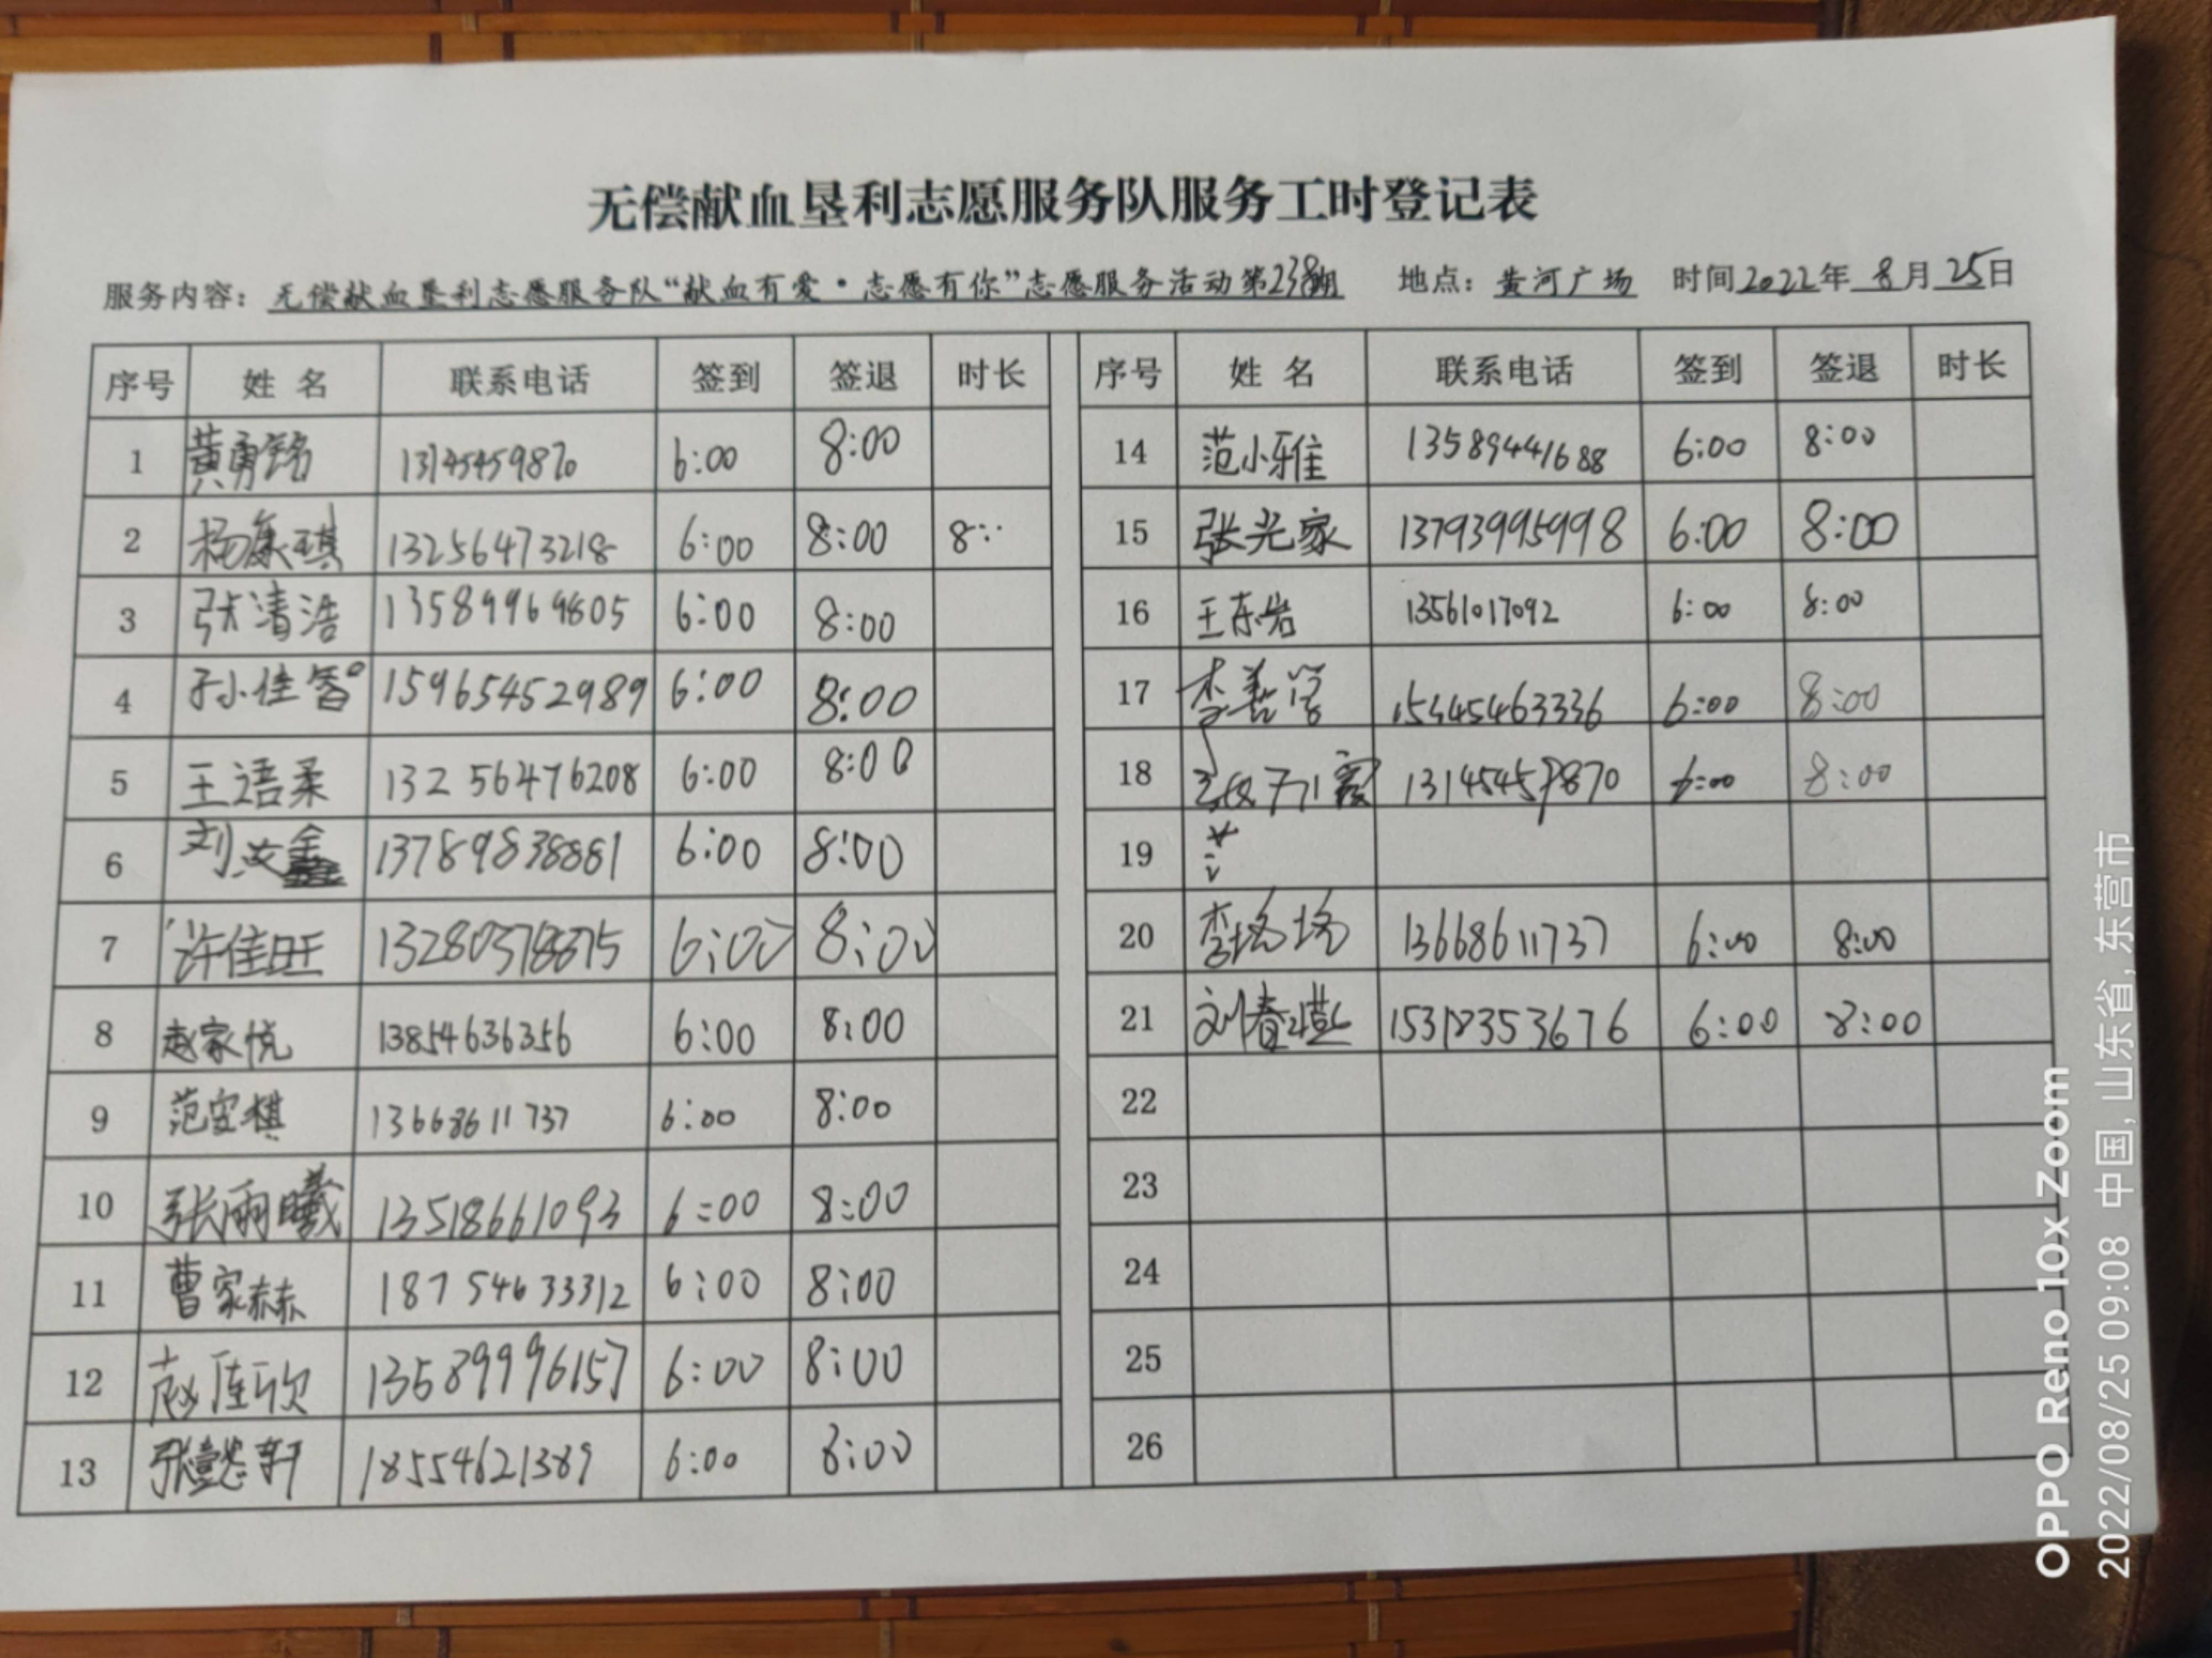 无偿献血垦利志愿服务队服务工时登记表
服务内容：无偿献血垦利志愿服务队“献血有爱·志愿有你”志愿服务活动第238期 地点：黄河广场 时间2022年8月25日
序号 姓名 联系电话 签到 签退 时长 序号 姓名 联系电话 签到 签退 时长
1 黄勇铭 13145459870 6:00 8:00 14 范小雅 13589441688 6:00 8:00
2 杨康琪 13256473218 6:00 8:00 15 张光家 13793995998 6:00 8:00
3 张清浩 13589969805 6:00 8:00 16 王东岩 13561017092 6:00 8:00
4 孙佳智 15965452989 6:00 8:00 17 李善学 15345463336 6:00 8:00
5 王语柔 13256476208 6:00 8:00 18 13145459870 6:00 8:00
6 刘 13789838881 6:00 8:00 19
7 许佳旺 6:00 8:00 20 李 13668611737 6:00 8:00
8 赵家悦 13854636356 6:00 8:00 21 刘春 15318353676 6:00 8:00
9 范宝棋 13668611737 6:00 8:00 22
10 张雨曦 13518661093 6:00 8:00 23
11 曹家赫 18754633312 6:00 8:00 24
12 赵佳欣 13589996157 6:00 8:00 25
13 张懿轩 18554621389 6:00 8:00 26
OPPO Reno 10x Zoom
2022/08/25 09:08 中国, 山东省, 东营市